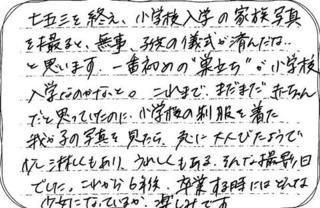 七五三を終え、小学校入学の家族写真
を撮ると、無事、子供の儀式が済んだな。
と思います。一番初めの“巣立ち”が小学校
入学なのかなと。これまで、まだまだ赤ちゃん
だと思ってたのに、小学校の制服を着た
我が子の写真を見たら、急に大人びたようで
少し淋しくもあり、うれしくもある。そんな撮影日
でした。これから6年後、卒業する時にはどんな
少女になっているか、楽しみです